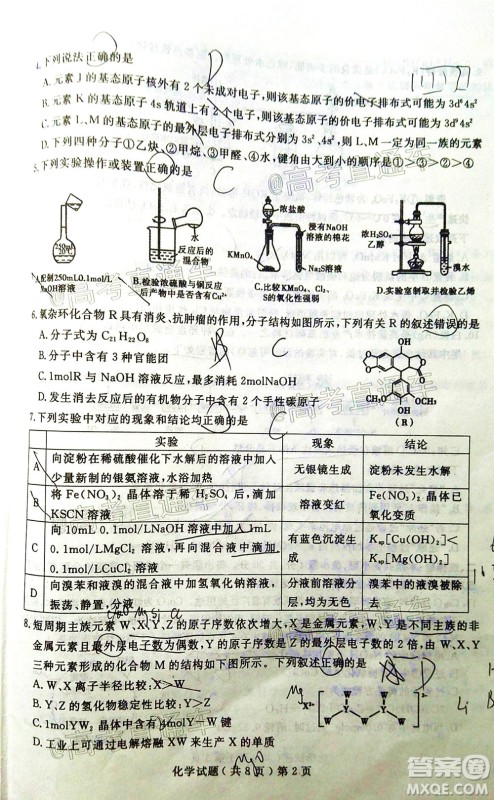 4.下列说法正确的是
A.元素J的基态原子核外有2个未成对电子,则该基态原子的价电子排布式可能为3d⁸4s²
B.元素K的基态原子4s轨道上有1个电子,则该基态原子的价电子排布式可能为3d⁴4s¹
C.元素L、M的基态原子的最外层电子排布分别为3s²、4s²,则L、M一定为同一族的元素
D.下述四种分子①乙炔、②甲烷、③甲醛、④水,键角由大到小的顺序是①>③>②>④
5.下列实验操作或装置正确的是
C
@高考直通车
250mL
水
反应后的
混合物
浓盐酸
浸有NaOH
溶液的棉花
KMnO₄
Na₂S溶液
浓H₂SO₄
乙醇
溴水
A.配制250mL0.1mol/L
NaOH溶液
B.检验浓硫酸与铜反应
后产物中是否含有Cu²⁺
C.比较KMnO₄、Cl₂、
S的氧化性强弱
D.实验室制取并检验乙烯
6.氧杂环化合物R具有消炎、抗肿瘤的作用,分子结构如图所示,下列有关R的叙述错误的是
A.分子式为C₂₁H₂₂O₈
B.分子中含有3种官能团
C.1molR与NaOH溶液反应,最多消耗2molNaOH
D.发生消去反应后的有机物分子中含有2个手性碳原子
OH
H₃CO
OCH₃
OH
(R)
7.下列实验中对应的现象和结论均正确的是
C
实验
现象
结论
A
向淀粉在稀硫酸催化下水解后的溶液中加入
少量新制的银氨溶液,水浴加热
无银镜生成
淀粉未发生水解
B
将Fe(NO₃)₂晶体溶于稀H₂SO₄后,滴加
KSCN溶液
溶液变红
Fe(NO₃)₂晶体已
氧化变质
C
向10mL0.1mol/LNaOH溶液中加入1mL
0.1mol/LMgCl₂溶液,再向混合液中滴加
0.1mol/LCuCl₂溶液
有蓝色沉淀生
成
Ksp[Cu(OH)₂]<
Ksp[Mg(OH)₂]
D
向溴苯和液溴的混合液中加氢氧化钠溶液,
振荡、静置,分液
分液前溶液分
为两层
溴苯中的液溴被除
去
8.短周期主族元素W、X、Y、Z的原子序数依次增大,X是金属元素,W、Y是不同主族的非
金属元素且最外层电子数为偶数,Y的原子序数是Z的最外层电子数的2倍,由W、X、Y
三种元素形成的化合物M的结构如下图所示。下列叙述正确的是
A.W、X离子半径比较:X>W
B.Y、Z的氢化物稳定性比较:Y>Z
C.1molYW₂晶体中含有4molW—Y键
D.工业上可通过电解熔融XW来生产X的单质
Mg
X²⁺
W
W
Y
Y
W
W
W
MgO
化学试题(共8页)第2页
答案圈
MXQE.COM